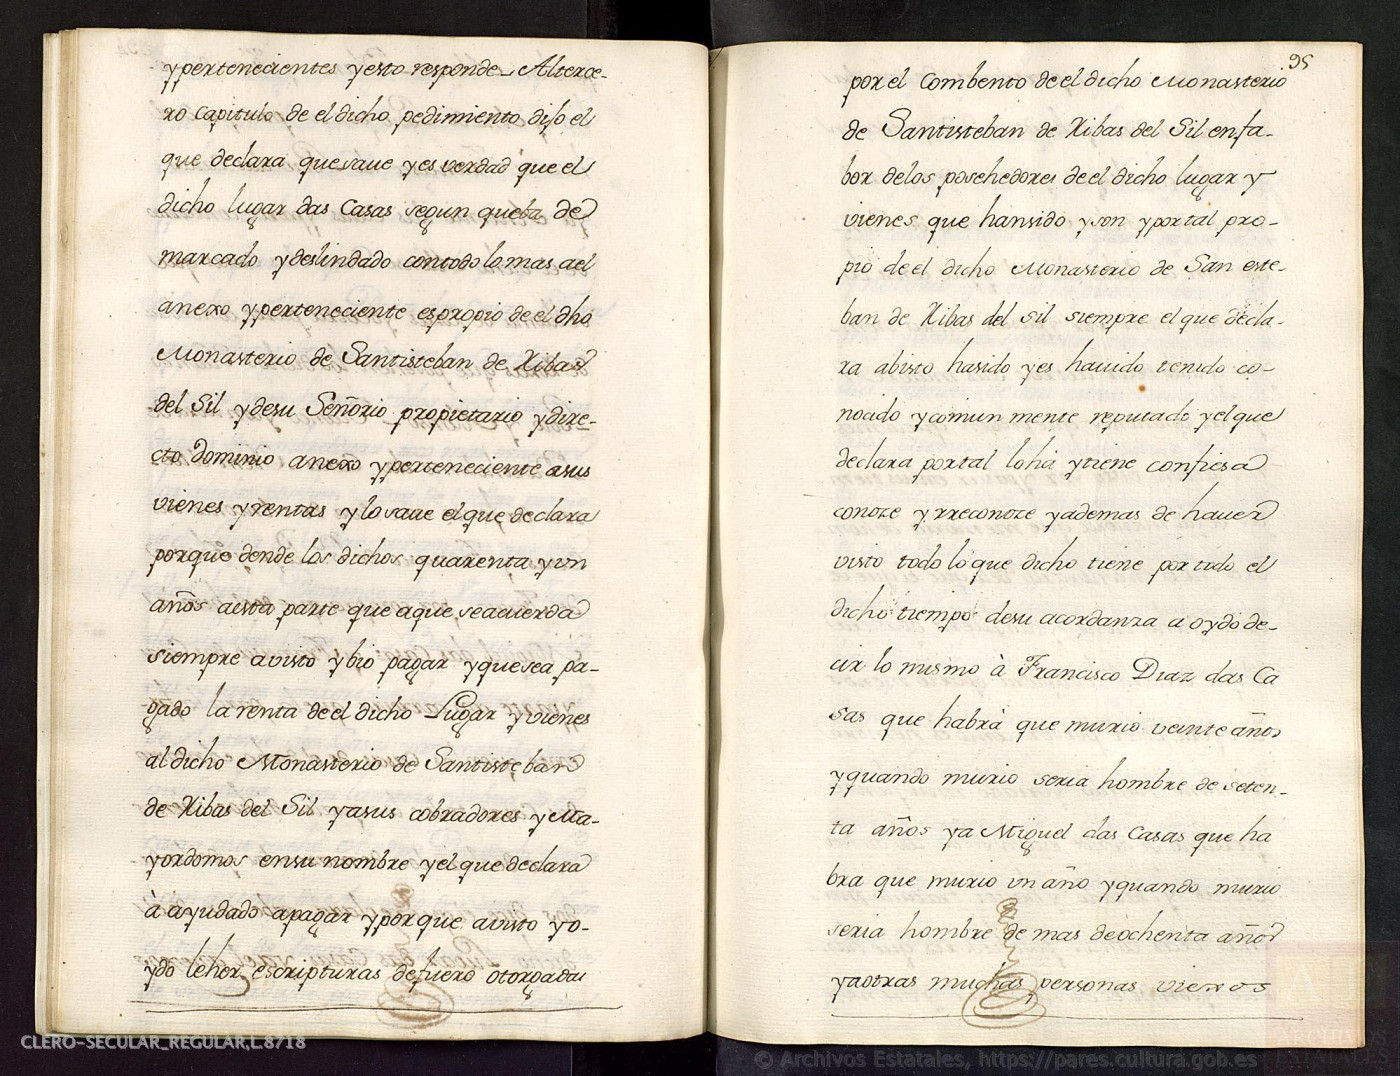 y pertenecientes y esto responde_ Alterce-
ro Capitulo de el dicho pedimiento dijo el
que declara que save y es verdad que el
dicho lugar das Casas segun queba de
marcado y deslindado con todo lo mas a el
anexo y perteneciente es propio de el dho
Monasterio de Santisteban de Ribas
del Sil y de su Señorio propietario y dire-
cto dominio anexo y perteneciente a sus
vienes y rentas y lo save el que declara
porque dende los dichos quarenta y un
años a esta parte que a que se acuerda
siempre a visto y bio pagar y que sea pa-
gado la renta de el dicho Lugar y vienes
al dicho Monasterio de Santisteban
de Ribas del Sil y a sus cobradores y Ma-
yordomos en su nombre y el que declara
à ayudado a pagar y porque a visto y o-
ydo leher escripturas de fuero otorgadas
95
por el Combento de el dicho Monasterio
de Santisteban de Ribas del Sil en fa-
bor de los posehedores de el dicho lugar y
vienes que han sido y son y por tal pro-
pio de el dicho Monasterio de San este-
ban de Ribas del Sil siempre el que decla-
ra a bisto ha sido y es havido tenido co-
nocido y comun mente reputado y el que
declara por tal lo ha y tiene confiesa
conoze y rreconoze y ademas de haver
visto todo lo que dicho tiene por todo el
dicho tiempo de su acordanza a oydo de-
cir lo mismo à Francisco Diaz das Ca
sas que habrà que murio veinte años
y quando murio seria hombre de seten-
ta años y a Miguel das Casas que ha
bra que murio un año y quando murio
seria hombre de mas de ochenta años
y a otras muchas personas viexos
CLERO-SECULAR_REGULAR,L.8718
© Archivos Estatales, https://pares.cultura.gob.es
ARCHIVOS
ESTATALES